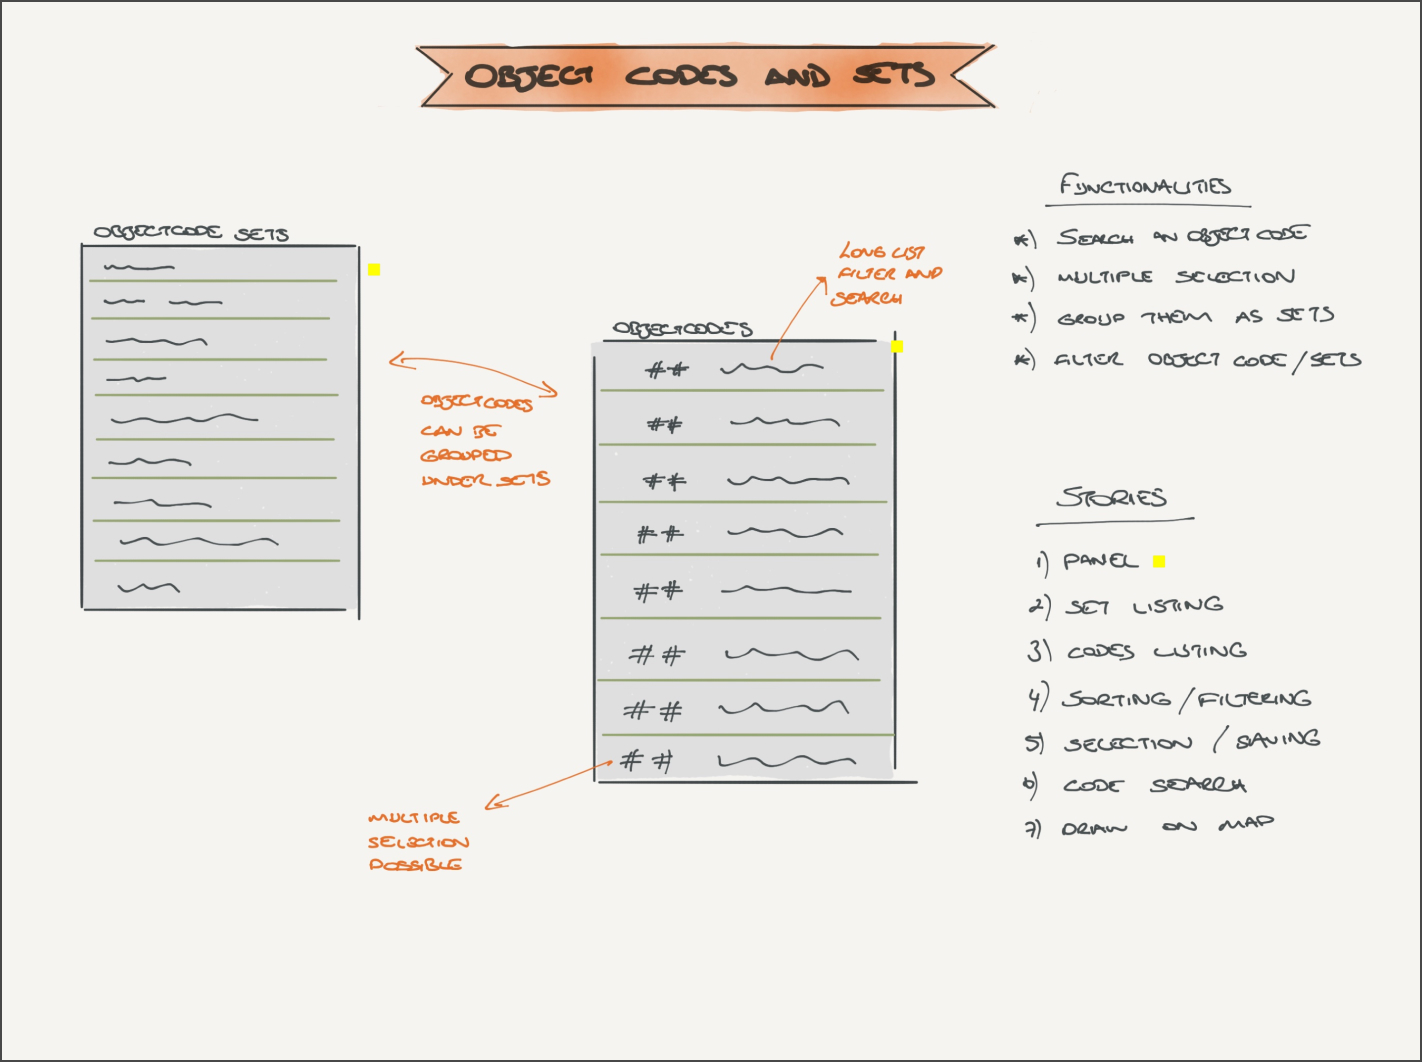 OBJECT CODES AND SETS
OBJECTCODE SETS
OBJECTCODES
CAN BE
GROUPED
UNDER SETS
LONG LIST
FILTER AND
SEARCH
OBJECTCODES
# #
# #
# #
# #
# #
# #
# #
# #
MULTIPLE
SELECTION
POSSIBLE
FUNCTIONALITIES
*) SEARCH AN OBJECT CODE
*) MULTIPLE SELECTION
*) GROUP THEM AS SETS
*) FILTER OBJECT CODE/SETS
STORIES
1) PANEL
2) SET LISTING
3) CODES LISTING
4) SORTING/FILTERING
5) SELECTION / SAVING
6) CODE SEARCH
7) DRAW ON MAP